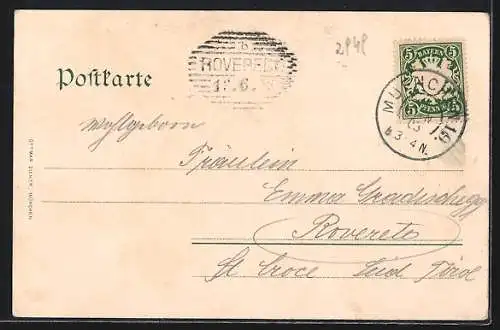 Postkarte
b
ROVERETO
2848
BAYERN
5 5
5 PFENNIG 5
MÜNCHEN
3-4 N.
Wohlgeboren
Fräulein
Emma
Rovereto
St Croce Süd Tirol
OTTMAR ZIEHER, MÜNCHEN